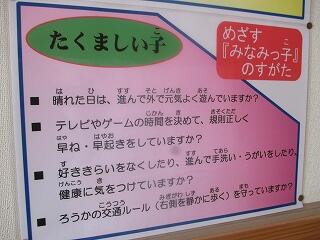 たくましい子
めざす
『みなみっ子』
のすがた
■ 晴れた日は、進んで外で元気よく遊んでいますか？
■ テレビやゲームの時間を決めて、規則正しく
早ね・早起きをしていますか？
■ 好ききらいをなくしたり、進んで手洗い・うがいをしたり、
健康に気をつけていますか？
■ ろうかの交通ルール（右側を静かに歩く）を守っていますか？